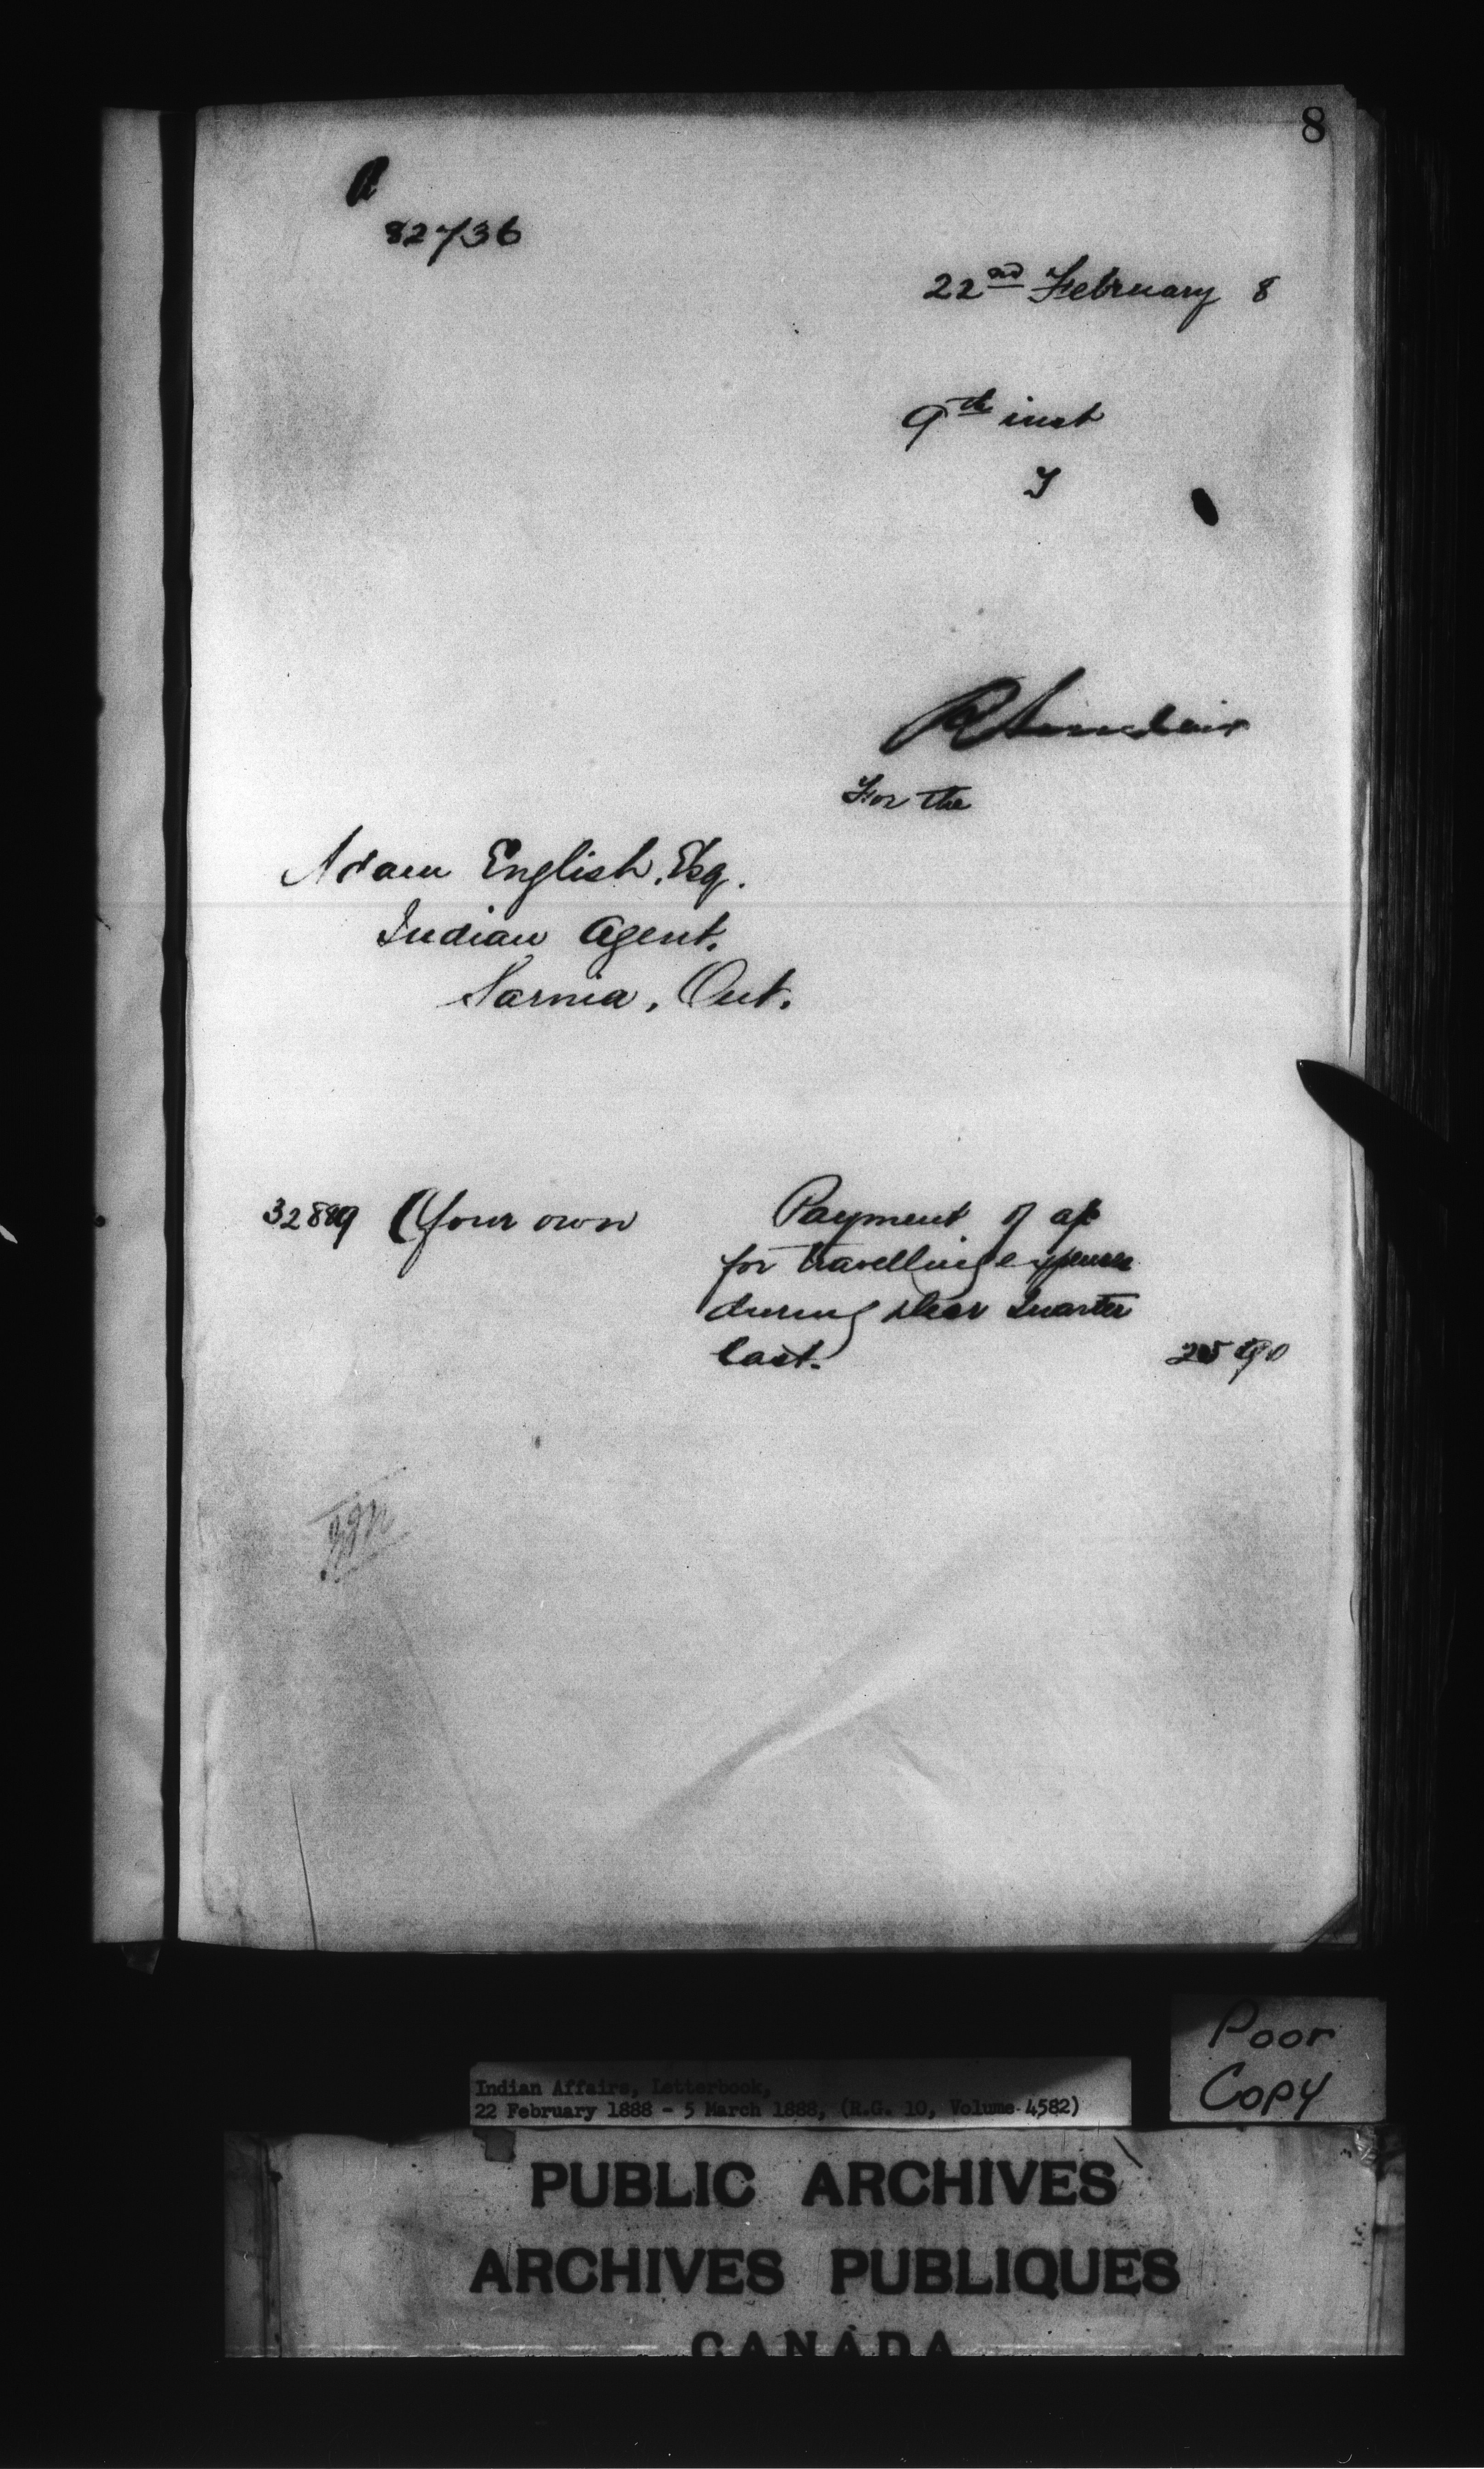 8
82736
22nd February 8
9th inst
R Sinclair
For the
Adam English, Esq.
Indian Agent.
Sarnia, Ont.
Your own Payment of a/c
for travelling expenses
during Quarter
last.
Poor
Copy
Indian Affairs, Letterbook,
22 February 1888 - 5 March 1888, (R.G. 10, Volume 4582)
PUBLIC ARCHIVES
ARCHIVES PUBLIQUES
CANADA